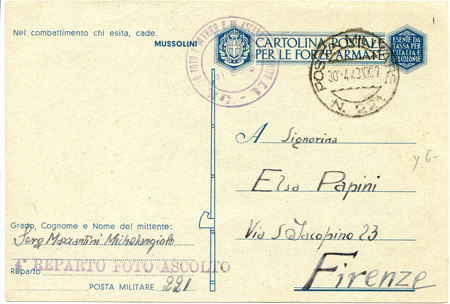 Nel combattimento chi esita, cade.
MUSSOLINI
CARTOLINA POSTALE
PER LE FORZE ARMATE
ESENTE DA
TASSA PER
L'ITALIA E
COLONIE
POSTA MILITARE
N. 221
A Signorina
Elsa Papini
Via S Jacopino 23
Firenze
y 6-
Grado, Cognome e Nome del mittente:
Serg Mazzantini Michelangiolo
4° REPARTO FOTO-ASCOLTO
Reparto
POSTA MILITARE 221